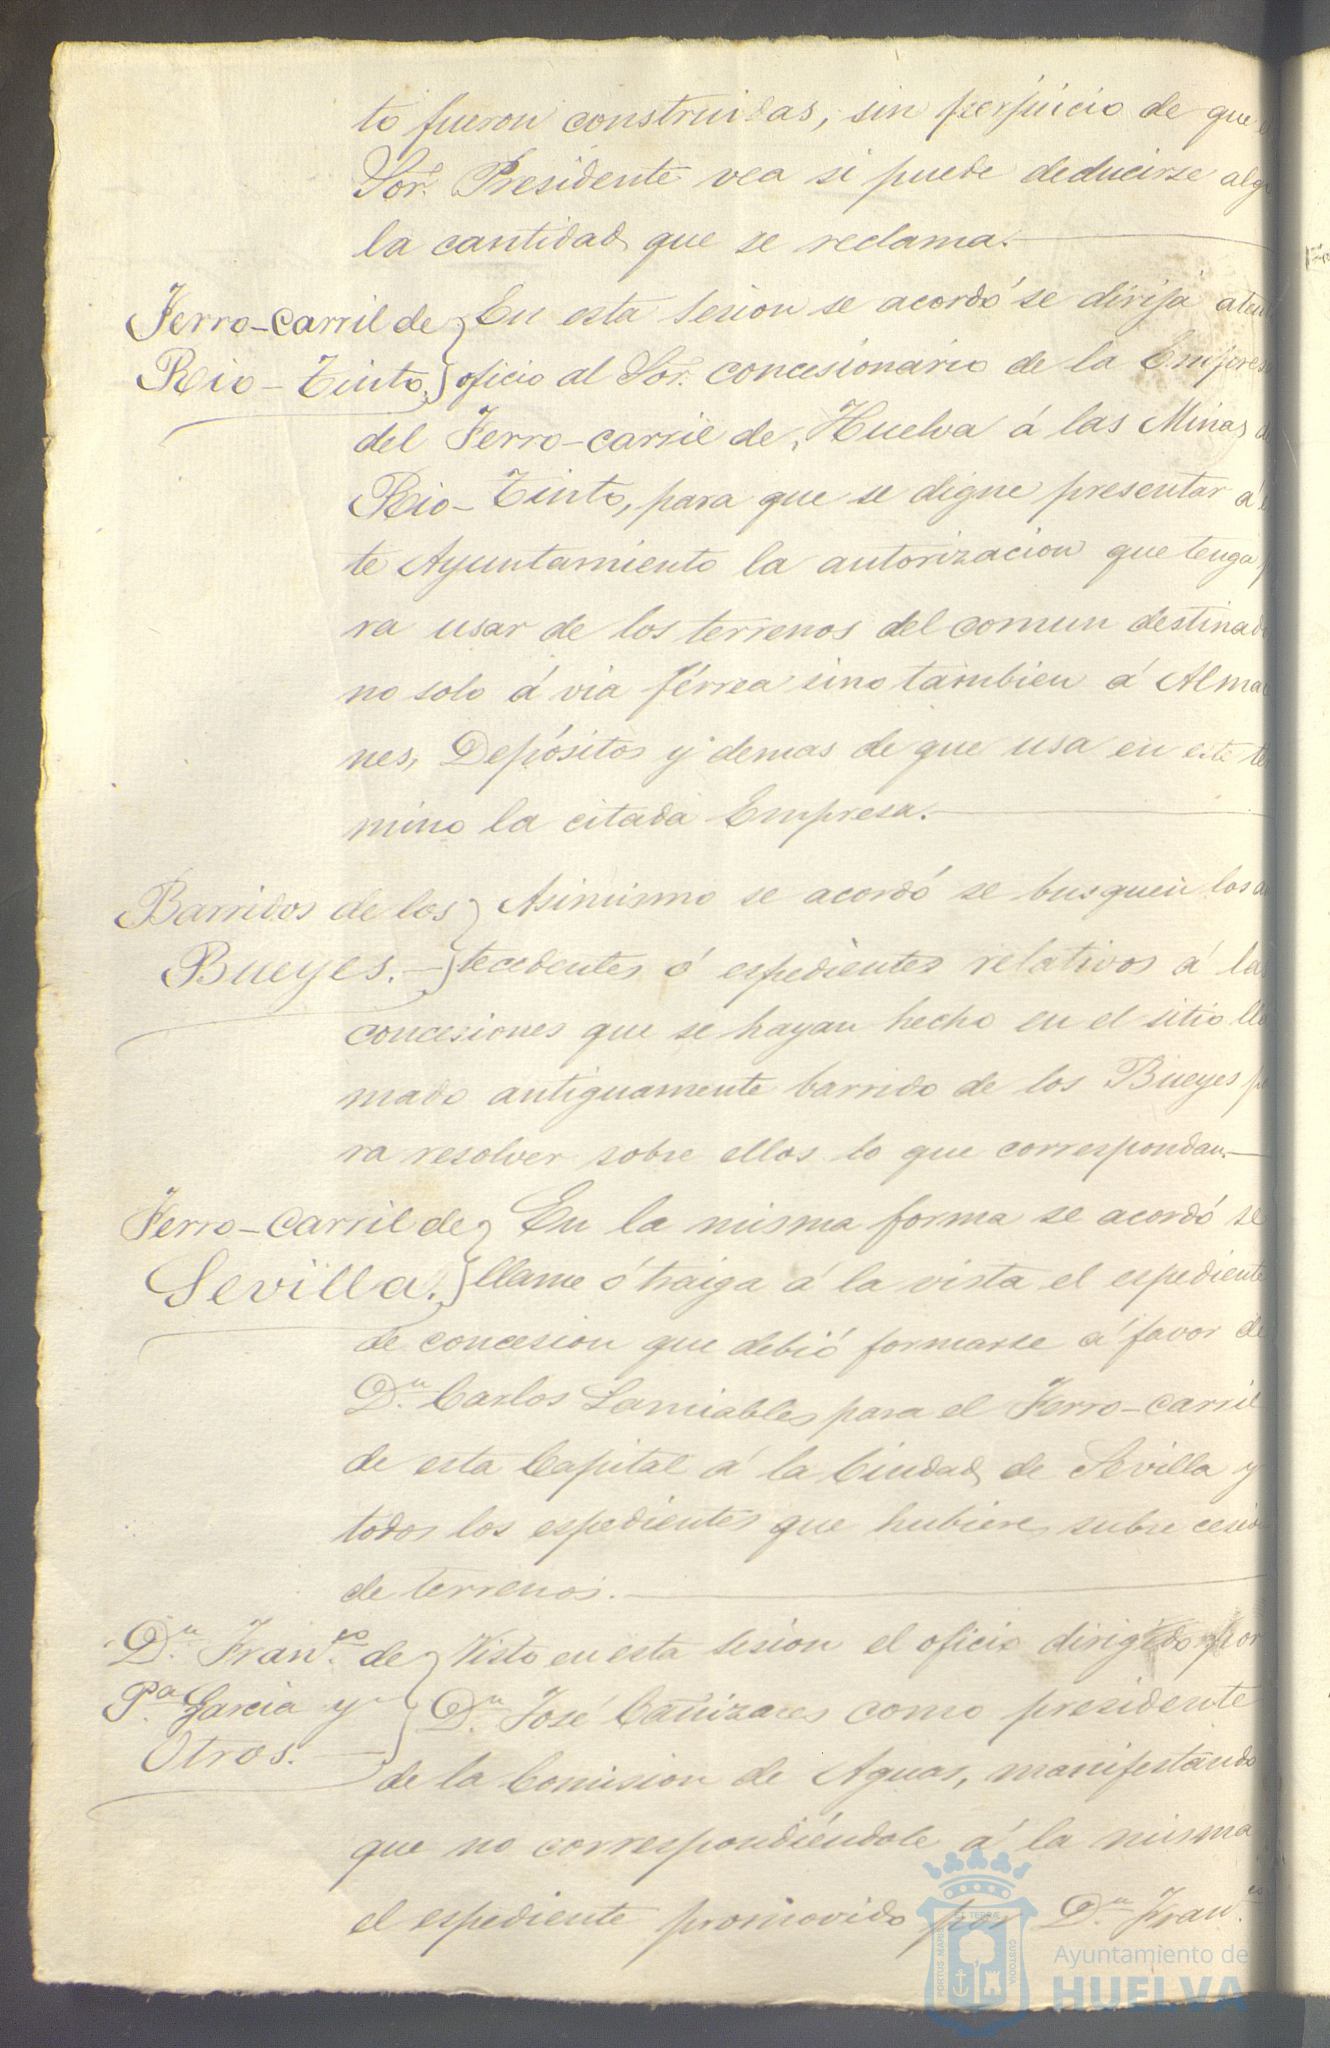 to fueron construidas, sin perjuicio de que
Sor. Presidente vea si puede deducirse alg
la cantidad que se reclama.
Ferro-carril de
Rio-Tinto.
En esta sesion se acordó se dirija aten
oficio al Sor. concesionario de la Empres
del Ferro-carril de Huelva á las Minas d
Rio-Tinto, para que se digne presentar á
te Ayuntamiento la autorizacion que tenga p
ra usar de los terrenos del comun destinad
no solo á via férrea sino tambien á Alma
nes, Depósitos y demas de que usa en este te
mino la citada Empresa.
Barridos de los
Bueyes.
Asimismo se acordó se busquen los a
tecedentes ó espedientes relativos á la
concesiones que se hayan hecho en el sitio lla
mado antiguamente barrido de los Bueyes p
ra resolver sobre ellos lo que correspondan.
Ferro-carril de
Sevilla.
En la misma forma se acordó se
llame ó traiga á la vista el espediente
de concesion que debió formarse á favor de
Dn. Carlos Lamiables para el Ferro-carril
de esta Capital á la Ciudad de Sevilla y
todos los espedientes que hubiere sobre cesio
de terrenos.
Dn. Franco. de
Pa. Garcia y
Otros.
Visto en esta sesion el oficio dirigido por
Dn. José Cañizares como presidente
de la Comision de Aguas, manifestando
que no correspondiéndole á la misma
el espediente promovido por Dn. Franco.
PORTUS MARIS ET TERRÆ CUSTODIA
Ayuntamiento de
HUELVA